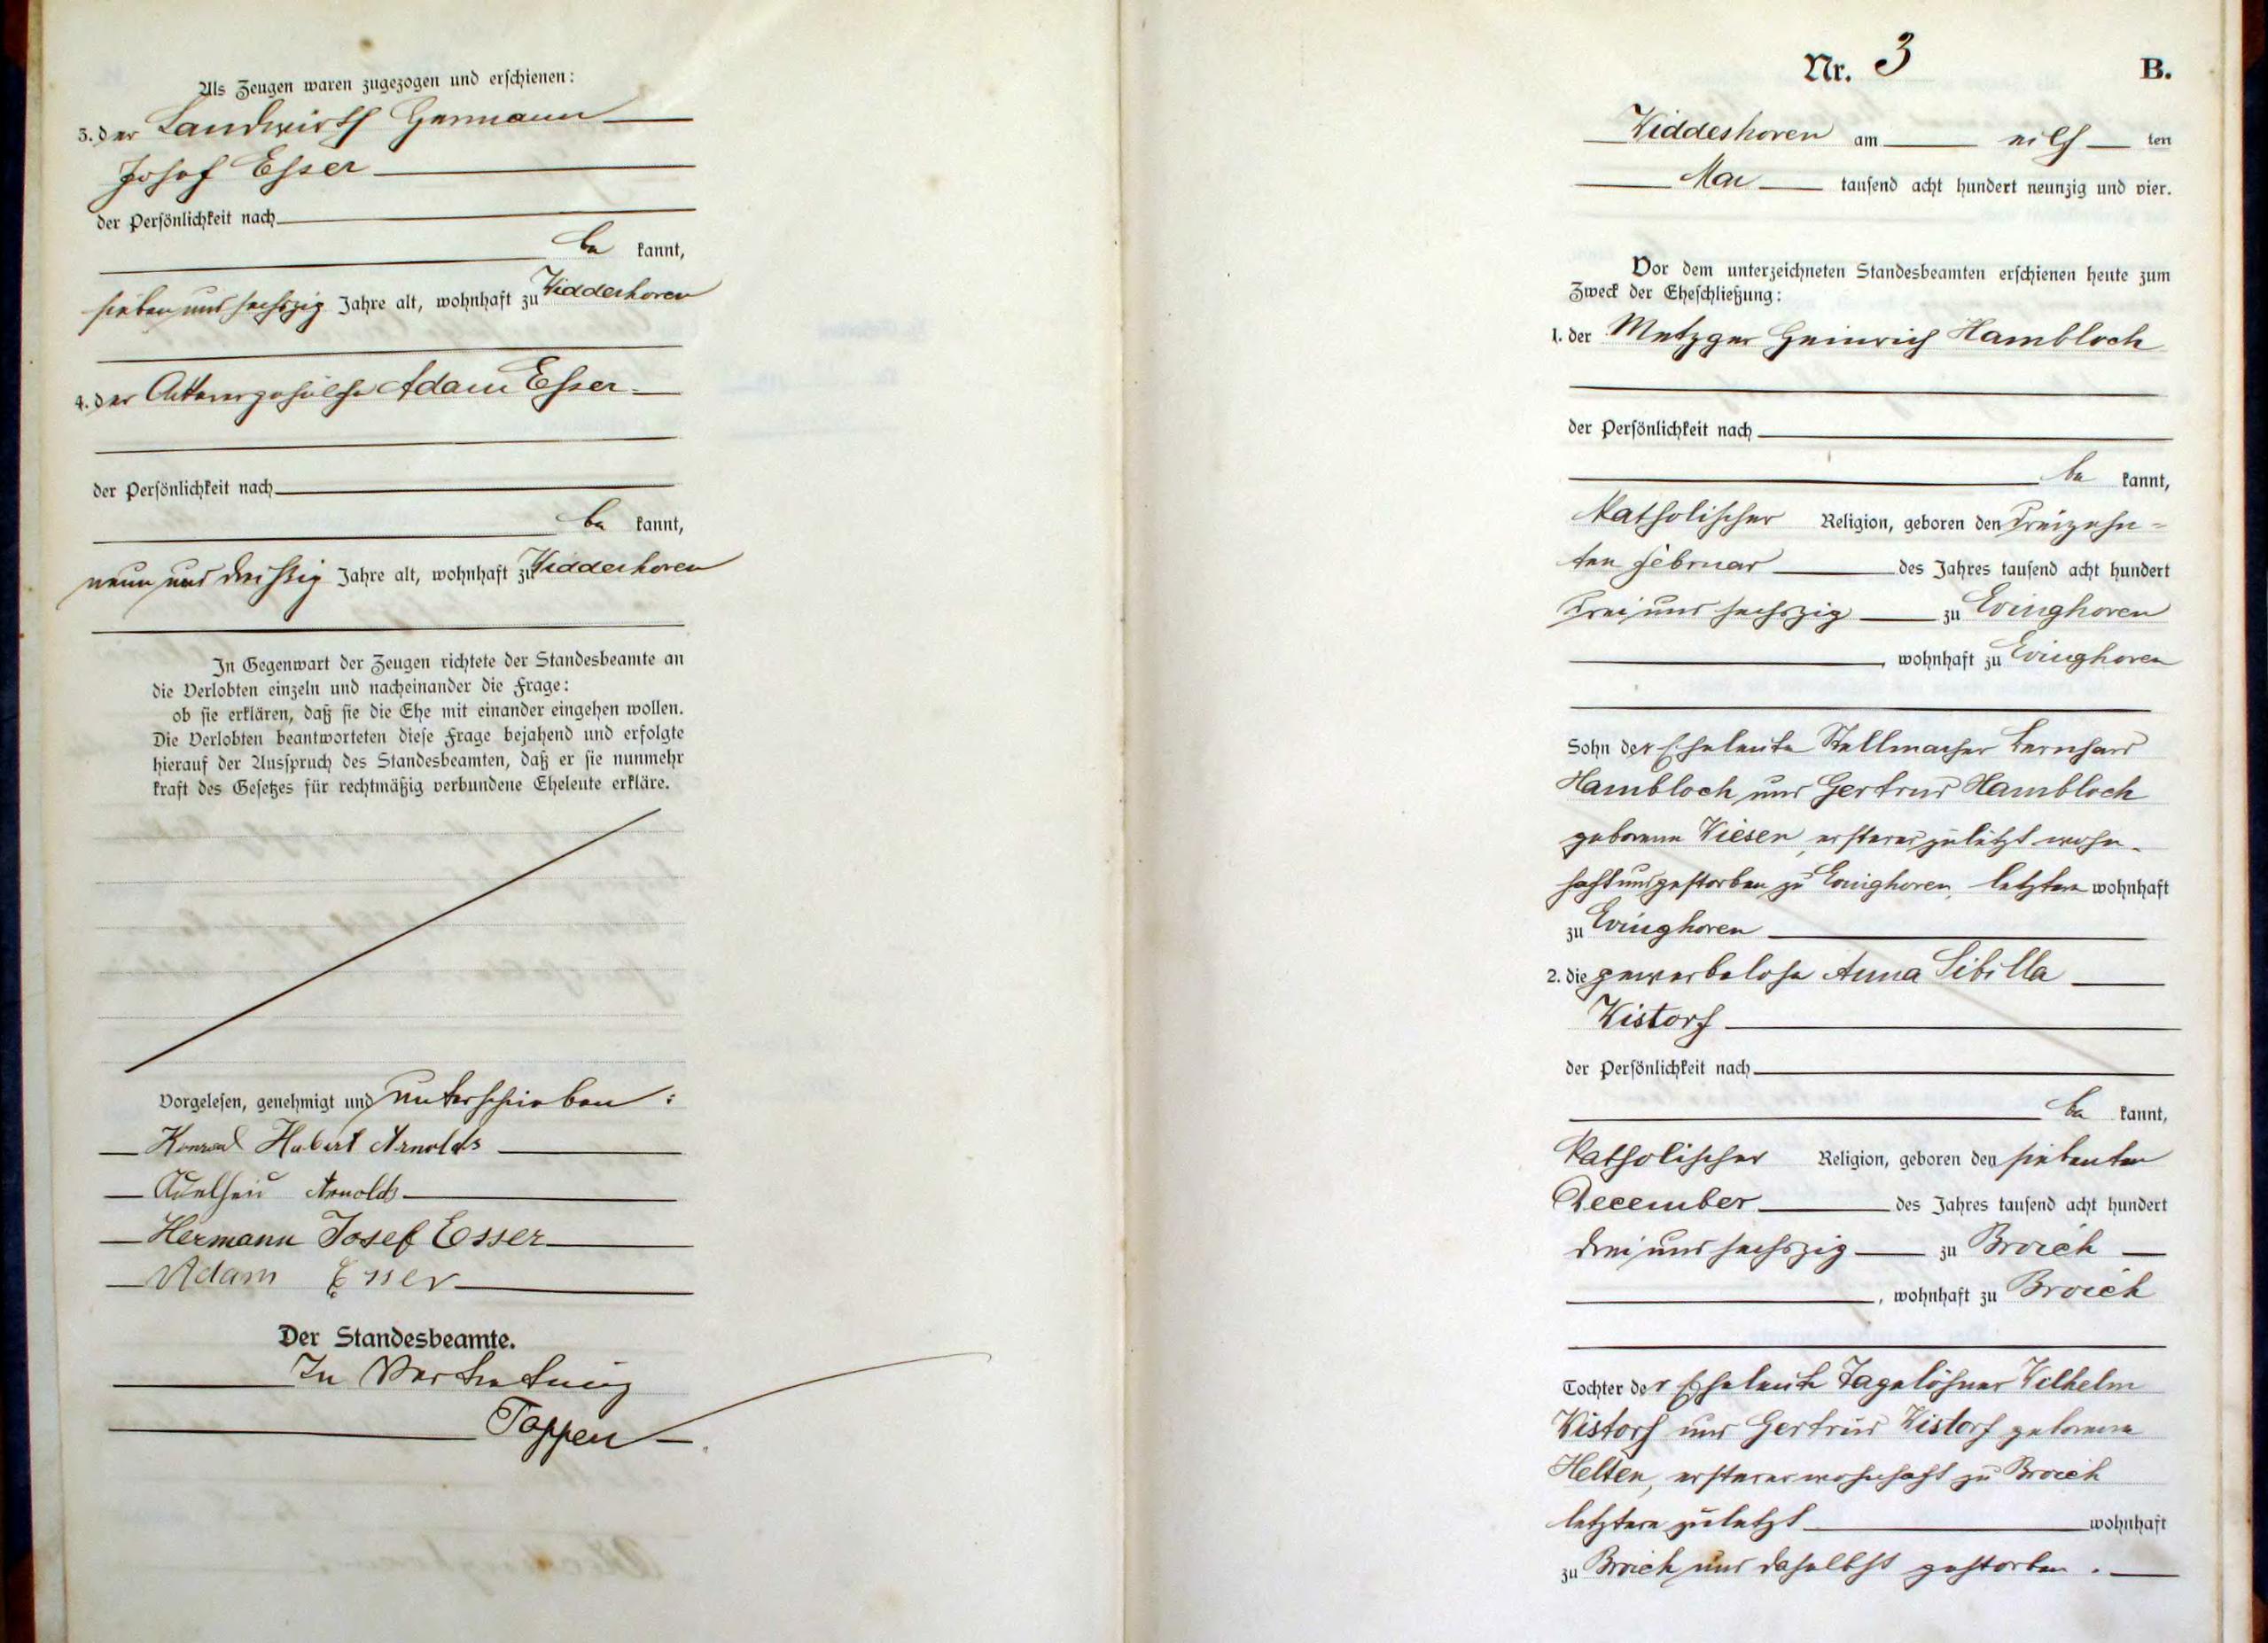 Als Zeugen waren zugezogen und erschienen:
3. der Landwirth Hermann
Josef Esser
der Persönlichkeit nach
be kannt,
sieben und sechszig Jahre alt, wohnhaft zu Widdeshoven
4. der Ackergehülfe Adam Esser
der Persönlichkeit nach
be kannt,
neun und dreißig Jahre alt, wohnhaft zu Widdeshoven
In Gegenwart der Zeugen richtete der Standesbeamte an
die Verlobten einzeln und nacheinander die Frage:
ob sie erklären, daß sie die Ehe mit einander eingehen wollen.
Die Verlobten beantworteten diese Frage bejahend und erfolgte
hierauf der Ausspruch des Standesbeamten, daß er sie nunmehr
kraft des Gesetzes für rechtmäßig verbundene Eheleute erkläre.
Vorgelesen, genehmigt und unterschrieben:
Konrad Hubert Arnolds
Adelheid Arnolds
Hermann Josef Esser
Adam Esser
Der Standesbeamte.
In Vertretung
Toppen
Nr. 3 B.
Widdeshoven am eilf ten
Mai tausend acht hundert neunzig und vier.
Vor dem unterzeichneten Standesbeamten erschienen heute zum
Zweck der Eheschließung:
1. der Metzger Heinrich Hambloch
der Persönlichkeit nach
be kannt,
katholischer Religion, geboren den dreizehn=
ten Februar des Jahres tausend acht hundert
drei und sechszig zu Evinghoven
, wohnhaft zu Evinghoven
Sohn der Eheleute Stellmacher Bernhard
Hambloch und Gertrud Hambloch
geborene Wiesen, ersterer zuletzt wohn-
haft und gestorben zu Evinghoven, letztere wohnhaft
zu Evinghoven
2. die gewerbelose Anna Sibilla
Wistorf
der Persönlichkeit nach
be kannt,
katholischer Religion, geboren den siebenten
December des Jahres tausend acht hundert
drei und sechszig zu Broich
, wohnhaft zu Broich
Tochter der Eheleute Tagelöhner Wilhelm
Wistorf und Gertrud Wistorf geborene
Helten, ersterer wohnhaft zu Broich
letztere zuletzt wohnhaft
zu Broich und daselbst gestorben.